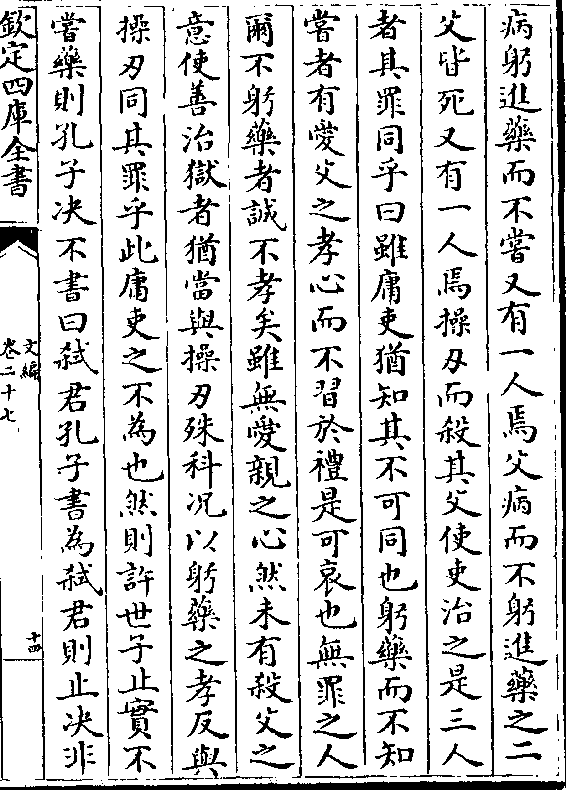 病躬進藥而不嘗又有一人焉父病而不躬進藥之二
父皆死又有一人焉操刃而殺其父使吏治之是三人
者其罪同乎曰雖庸吏猶知其不可同也躬藥而不知
嘗者有愛父之孝心而不習於禮是可哀也無罪之人
爾不躬藥者誠不孝矣雖無愛親之心然未有殺父之
意使善治獄者猶當與操刃殊科况以躬藥之孝反與
操刃同其罪乎此庸吏之不為也然則許世子止實不
嘗藥則孔子决不書曰弑君孔子書為弑君則止决非
欽定四庫全書
文編
卷二十七
十四